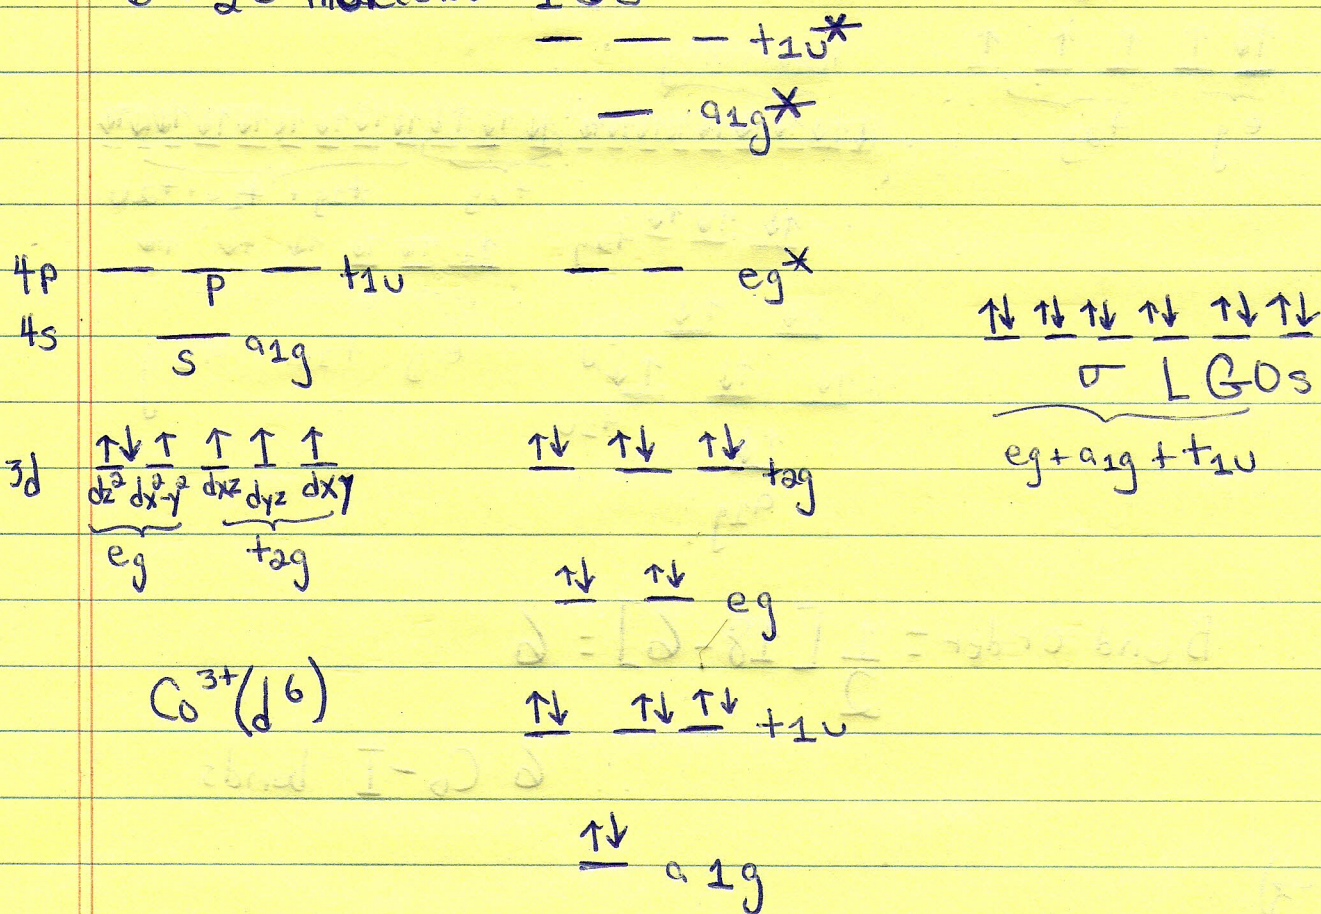 t1u*
a1g*
4p — — — t1u — — eg*
p
4s — a1g
s
↑↓ ↑↓ ↑↓ ↑↓ ↑↓ ↑↓
σ LGOs
eg + a1g + t1u
3d ↑↓ ↑ ↑ ↑ ↑ ↑↓ ↑↓ ↑↓ t2g
dz² dx²-y² dxz dyz dxy
eg t2g
↑↓ ↑↓ eg
Co³⁺(d⁶) ↑↓ ↑↓ ↑↓ t1u
↑↓ a1g